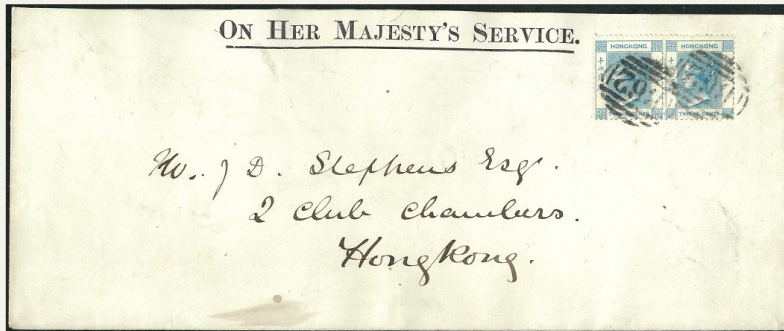 ON HER MAJESTY'S SERVICE.
HONGKONG HONGKONG
TWELVE CENTS TWELVE CENTS
D. Stephens Esq.
2 Club Chambers.
Hongkong.